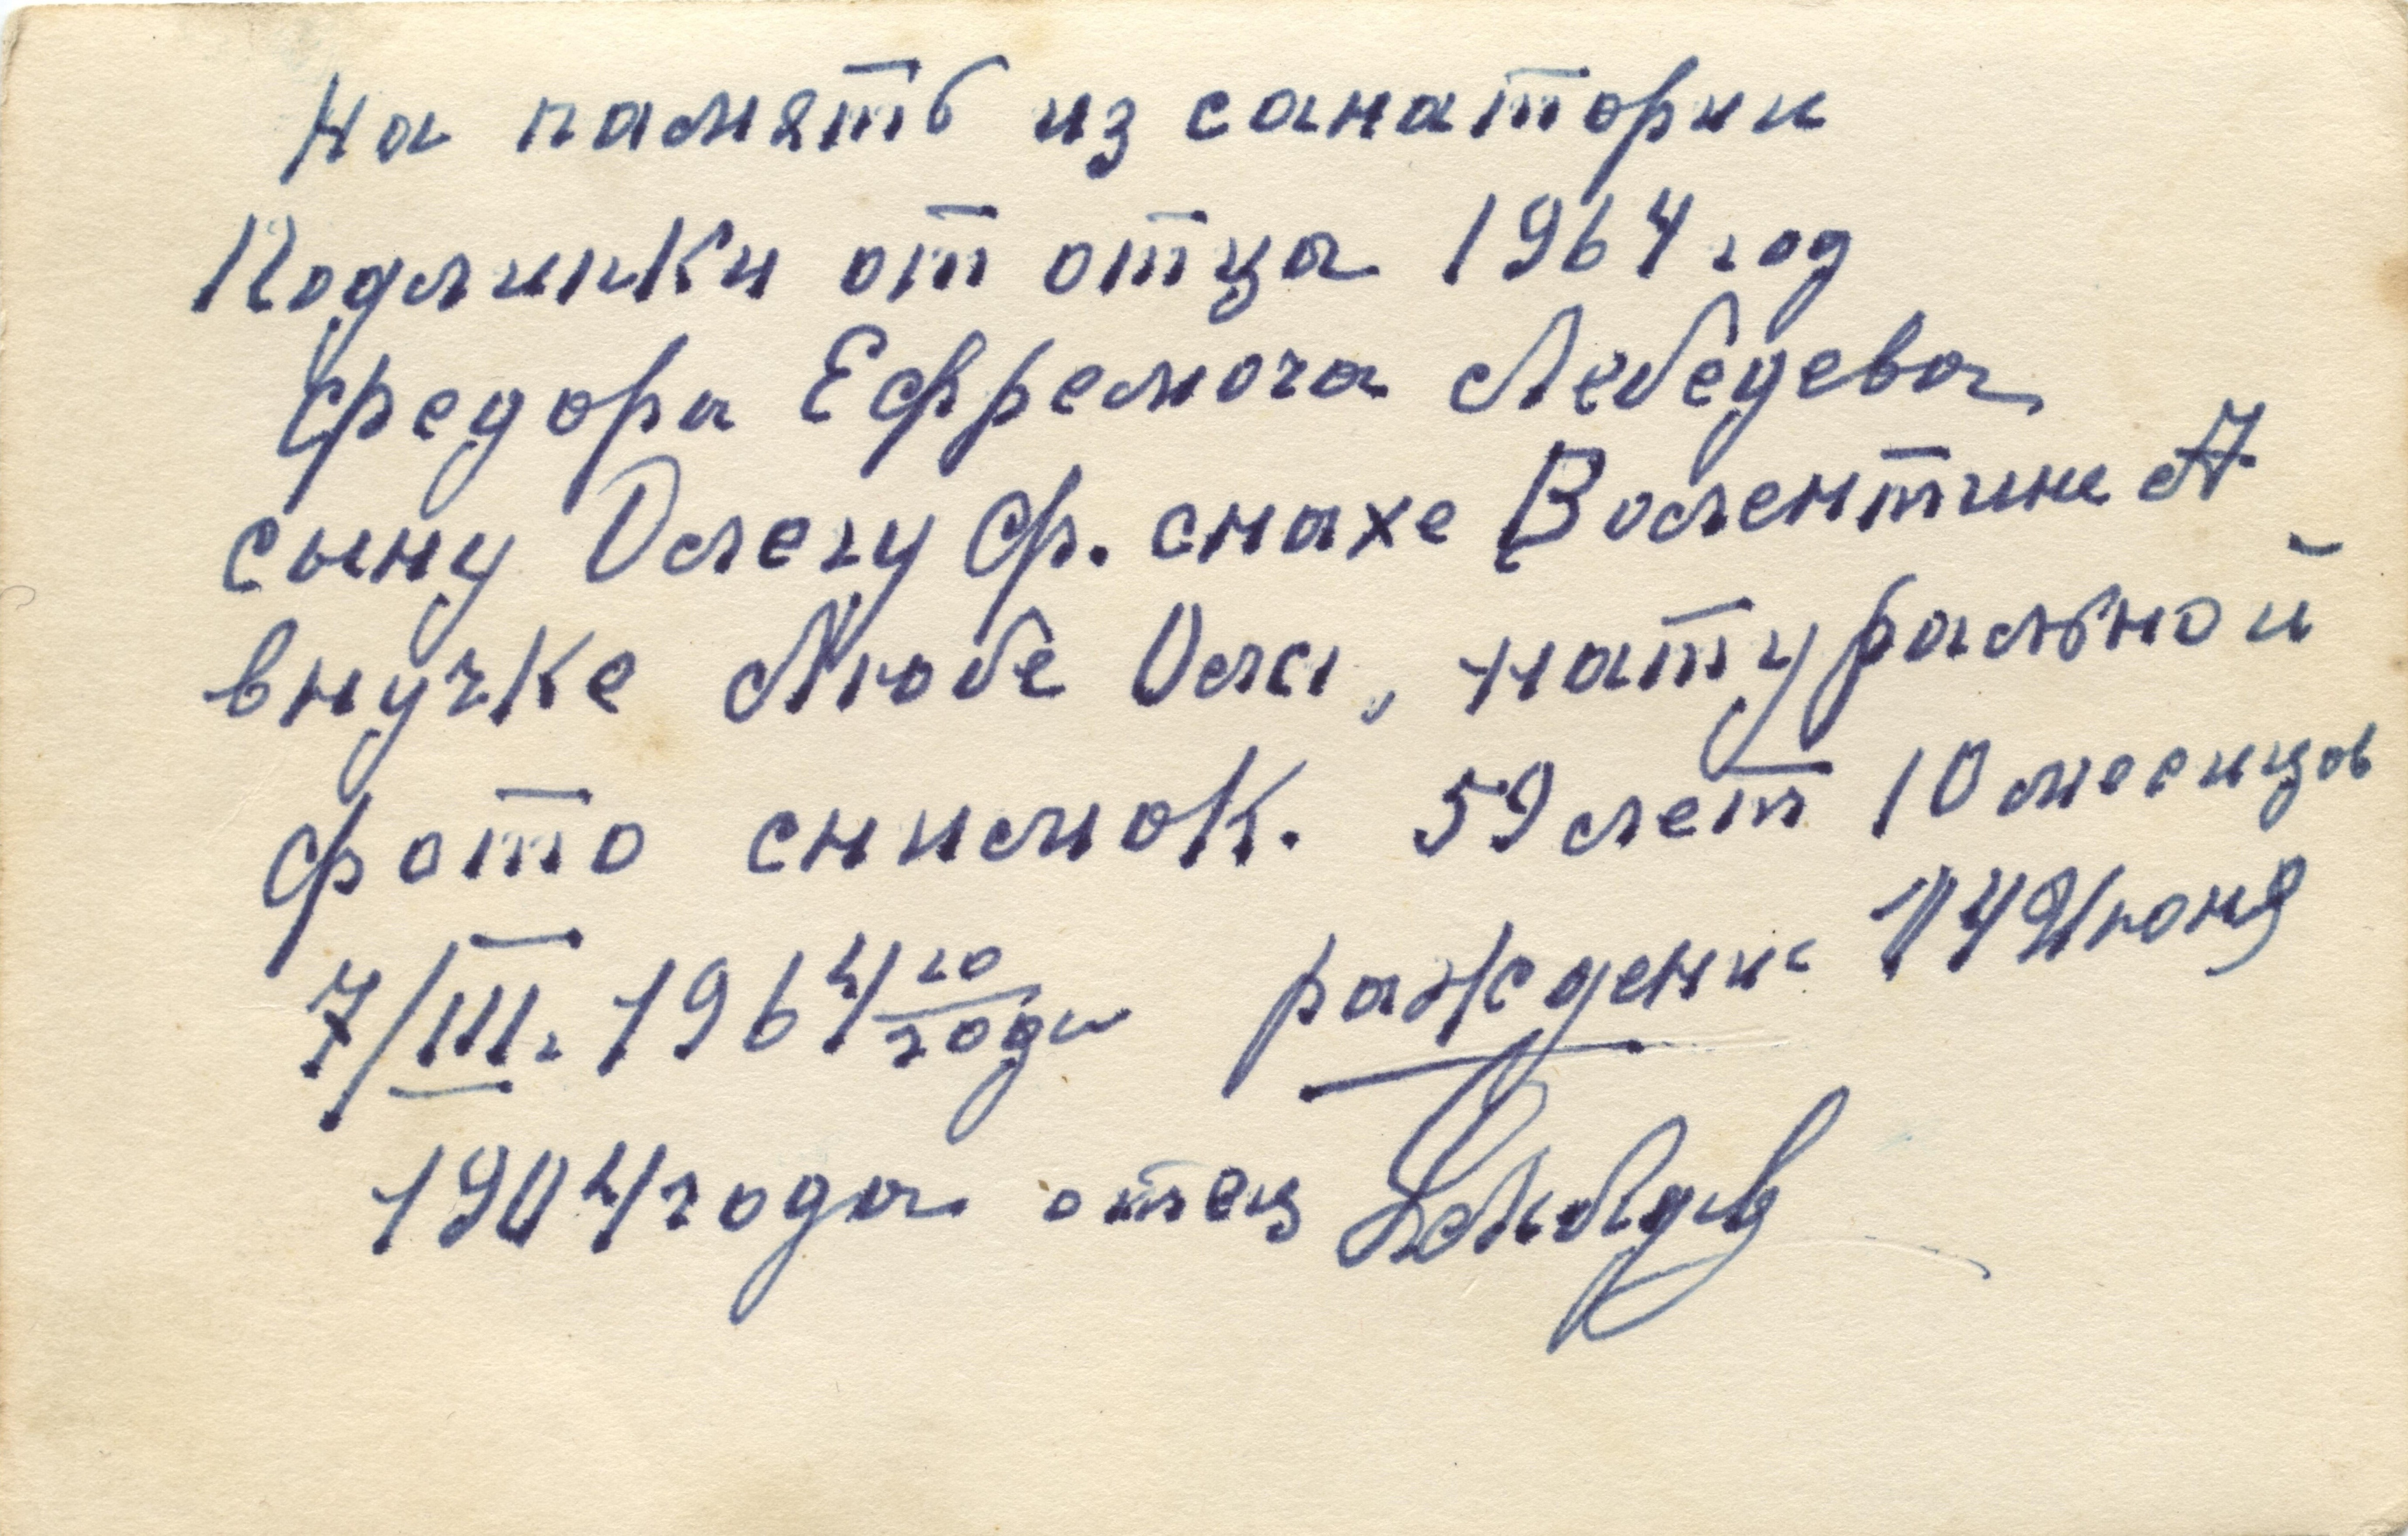 На память из санатории
Подлипки от отца 1964 год
Федора Ефремоча Лебедева
сыну Олегу Ф. снахе Волентине А.
внучке Любе Оле, натуральной
фото снимок. 59 лет 10 месицов
7/III. 1964 го года рождение 14 Июня
1904 года отец Лебедев